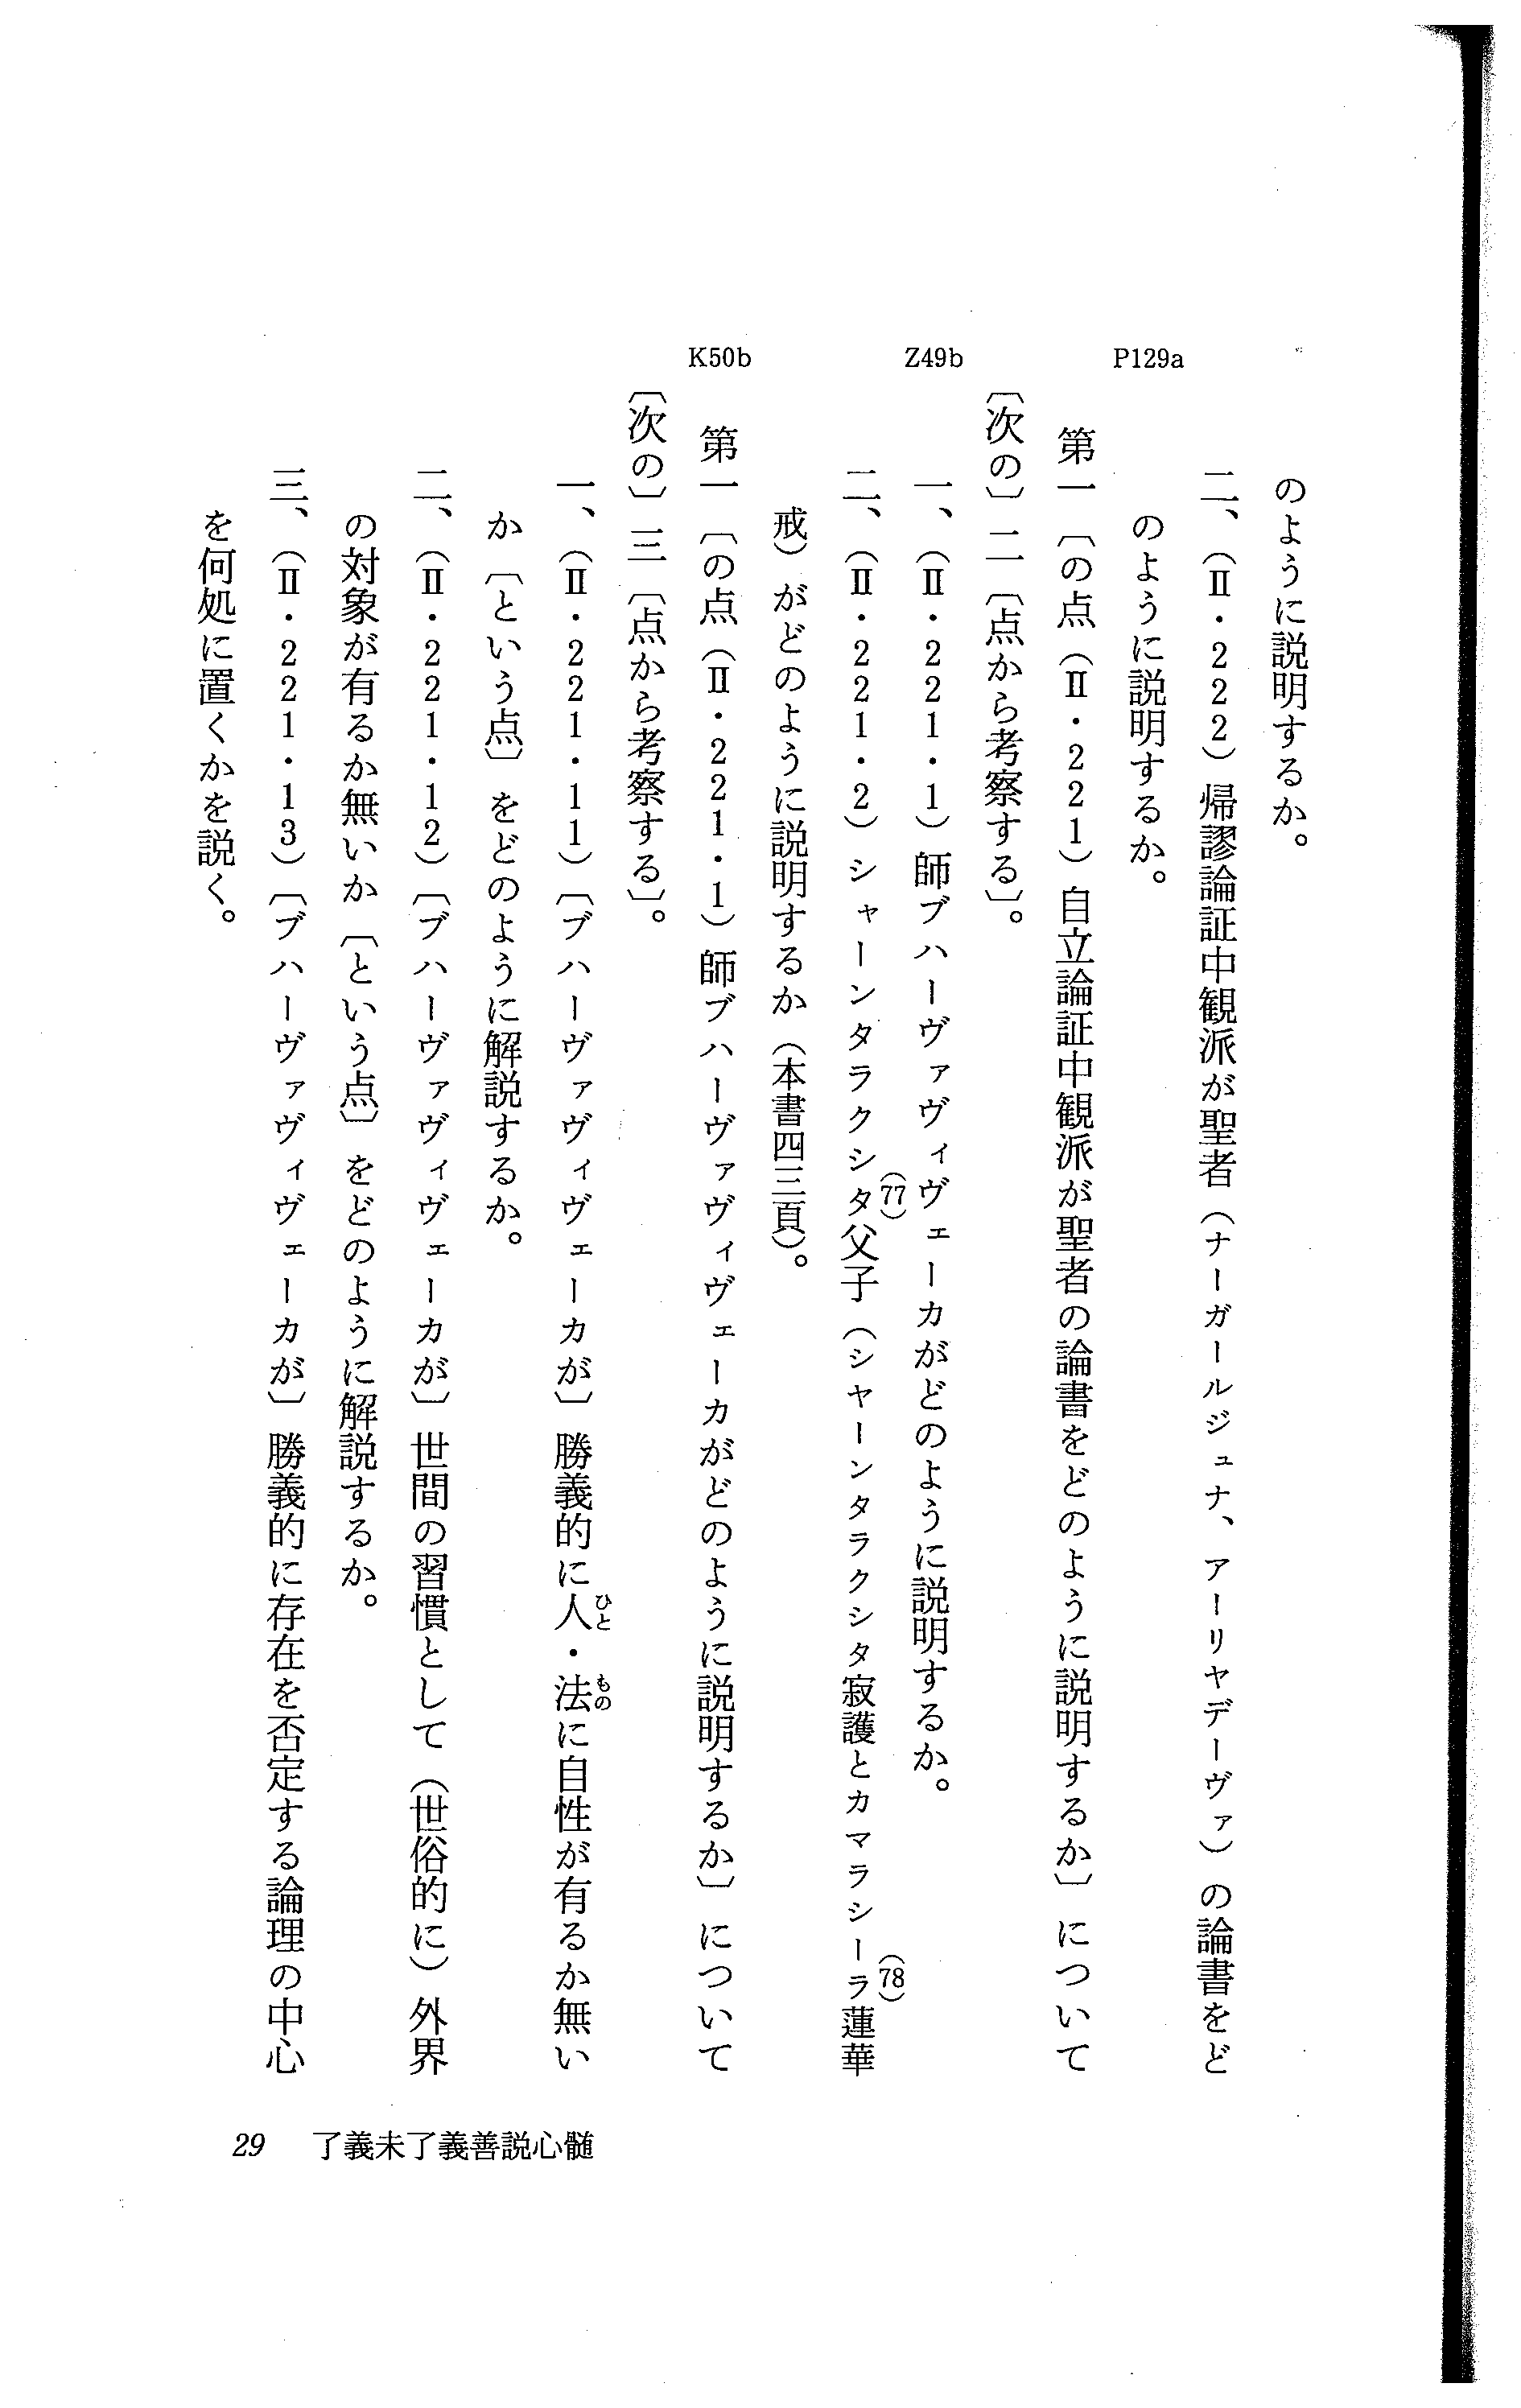 のように説明するか。
二、(Ⅱ・222)帰謬論証中観派が聖者(ナーガールジュナ、アーリヤデーヴァ)の論書をど
のように説明するか。
P129a
第一〔の点(Ⅱ・221)自立論証中観派が聖者の論書をどのように説明するか〕について
〔次の〕二〔点から考察する〕。
Z49b
一、(Ⅱ・221・1)師ブハーヴァヴィヴェーカがどのように説明するか。
二、(Ⅱ・221・2)シャーンタラクシタ(77)父子(シヤーンタラクシタ寂護とカマラシーラ(78)蓮華
戒)がどのように説明するか(本書四三頁)。
K50b
第一〔の点(Ⅱ・221・1)師ブハーヴァヴィヴェーカがどのように説明するか〕について
〔次の〕三〔点から考察する〕。
一、(Ⅱ・221・11)〔ブハーヴァヴィヴェーカが〕勝義的に人ひと・法ものに自性が有るか無い
か〔という点〕をどのように解説するか。
二、(Ⅱ・221・12)〔ブハーヴァヴィヴェーカが〕世間の習慣として(世俗的に)外界
の対象が有るか無いか〔という点〕をどのように解説するか。
三、(Ⅱ・221・13)〔ブハーヴァヴィヴェーカが〕勝義的に存在を否定する論理の中心
を何処に置くかを説く。
29 了義未了義善説心髄